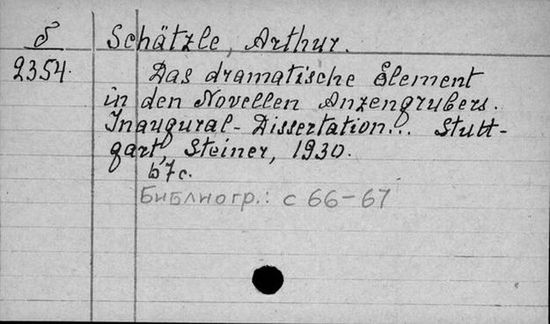 δ Schätzle, Arthur.
2354. Das dramatische Element
in den Novellen Anzengrubers.
Inaugural-Dissertation... Stutt-
gart, Steiner, 1930.
67c.
Библиогр.: с 66-67